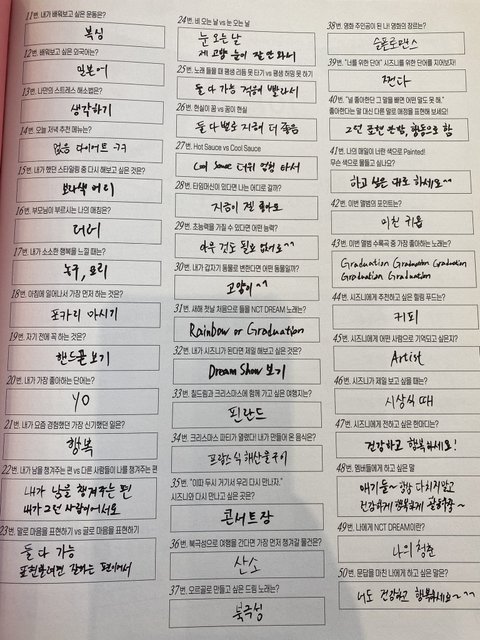 11번. 내가 배워보고 싶은 운동은?
복싱
12번. 배워보고 싶은 외국어는?
일본어
13번. 나만의 스트레스 해소법은?
생각하기
14번. 오늘 저녁 추천 메뉴는?
없음 다이어트 ㄱㄱ
15번. 내가 했던 스타일링 중 다시 해보고 싶은 것은?
보라색 머리
16번. 부모님이 부르시는 나의 애칭은?
17번. 내가 소소한 행복을 느낄 때는?
농구, 요리
18번. 아침에 일어나서 가장 먼저 하는 것은?
포카리 마시기
19번. 자기 전에 꼭 하는 것은?
핸드폰 보기
20번. 내가 가장 좋아하는 단어는?
YO
21번. 내가 요즘 경험했던 가장 신기했던 일은?
행복
22번. 내가 남을 챙겨주는 편 vs 다른 사람들이 나를 챙겨주는 편
내가 남을 챙겨주는 편
내가 그런 사람이어서요
23번. 말로 마음을 표현하기 vs 글로 마음을 표현하기
둘 다 가능
표현한다면 잘하는 편이어서
24번. 비 오는 날 vs 눈 오는 날
눈 오는 날
제 고향 눈이 잘 안 와서
25번. 노래 들을 때 평생 리듬 못 타기 vs 평생 허밍 못 하기
둘 다 가능 적응 빨라서
26번. 현실이 꿈 vs 꿈이 현실
둘 다 별로 지금이 더 좋음
27번. Hot Sauce vs Cool Sauce
Cool Sauce 더위 엄청 타서
28번. 타임머신이 있다면 나는 어디로 갈까?
지금이 젤 좋아요
29번. 초능력을 가질 수 있다면 어떤 능력?
아무 것도 필요 없어요^^
30번. 내가 갑자기 동물로 변한다면 어떤 동물일까?
고양이^^
31번. 새해 첫날 처음으로 들을 NCT DREAM 노래는?
Rainbow or Graduation
32번. 내가 시즈니가 된다면 제일 해보고 싶은 것은?
Dream Show 보기
33번. 칠드림과 크리스마스에 함께 가고 싶은 여행지는?
핀란드
34번. 크리스마스 파티가 열렸다! 내가 만들어 온 음식은?
프랑스식 해산물구이
35번. "이따 두시 거기서 우리 다시 만나자."
시즈니와 다시 만나고 싶은 곳은?
콘서트장
36번. 북극성으로 여행을 간다면 가장 먼저 챙겨갈 물건은?
산소
37번. 오르골로 만들고 싶은 드림 노래는?
북극성
38번. 영화 주인공이 된 나! 영화의 장르는?
슬픈로맨스
39번. "너를 위한 단어" 시즈니를 위한 단어를 지어보자!
쩐다
40번. "널 좋아한단 그 말을 빼면 어떤 말도 못 해."
좋아한다는 말 대신 다른 말로 애정을 표현해 보세요!
그런 표현 안함, 행동으로 함
41번. 나의 매일이 너란 색으로 Painted!
무슨 색으로 물들고 싶나요?
하고 싶은 대로 하세요~^^
42번. 이번 앨범의 포인트는?
미친 귀욤
43번. 이번 앨범 수록곡 중 가장 좋아하는 노래는?
Graduation Graduation Graduation
Graduation Graduation
44번. 시즈니에게 추천하고 싶은 힐링 푸드는?
커피
45번. 시즈니에게 어떤 사람으로 기억되고 싶은지?
Artist
46번. 시즈니가 제일 보고 싶을 때는?
시상식 때
47번. 시즈니에게 전하고 싶은 한마디는?
건강하고 행복하세요!
48번. 멤버들에게 하고 싶은 말
얘기들~ 항상 다치지말고
건강하게 행복하게
49번. 나에게 NCT DREAM이란?
나의 청춘
50번. 문답을 마친 나에게 하고 싶은 말은?
너도 건강하고 행복하세요~^^